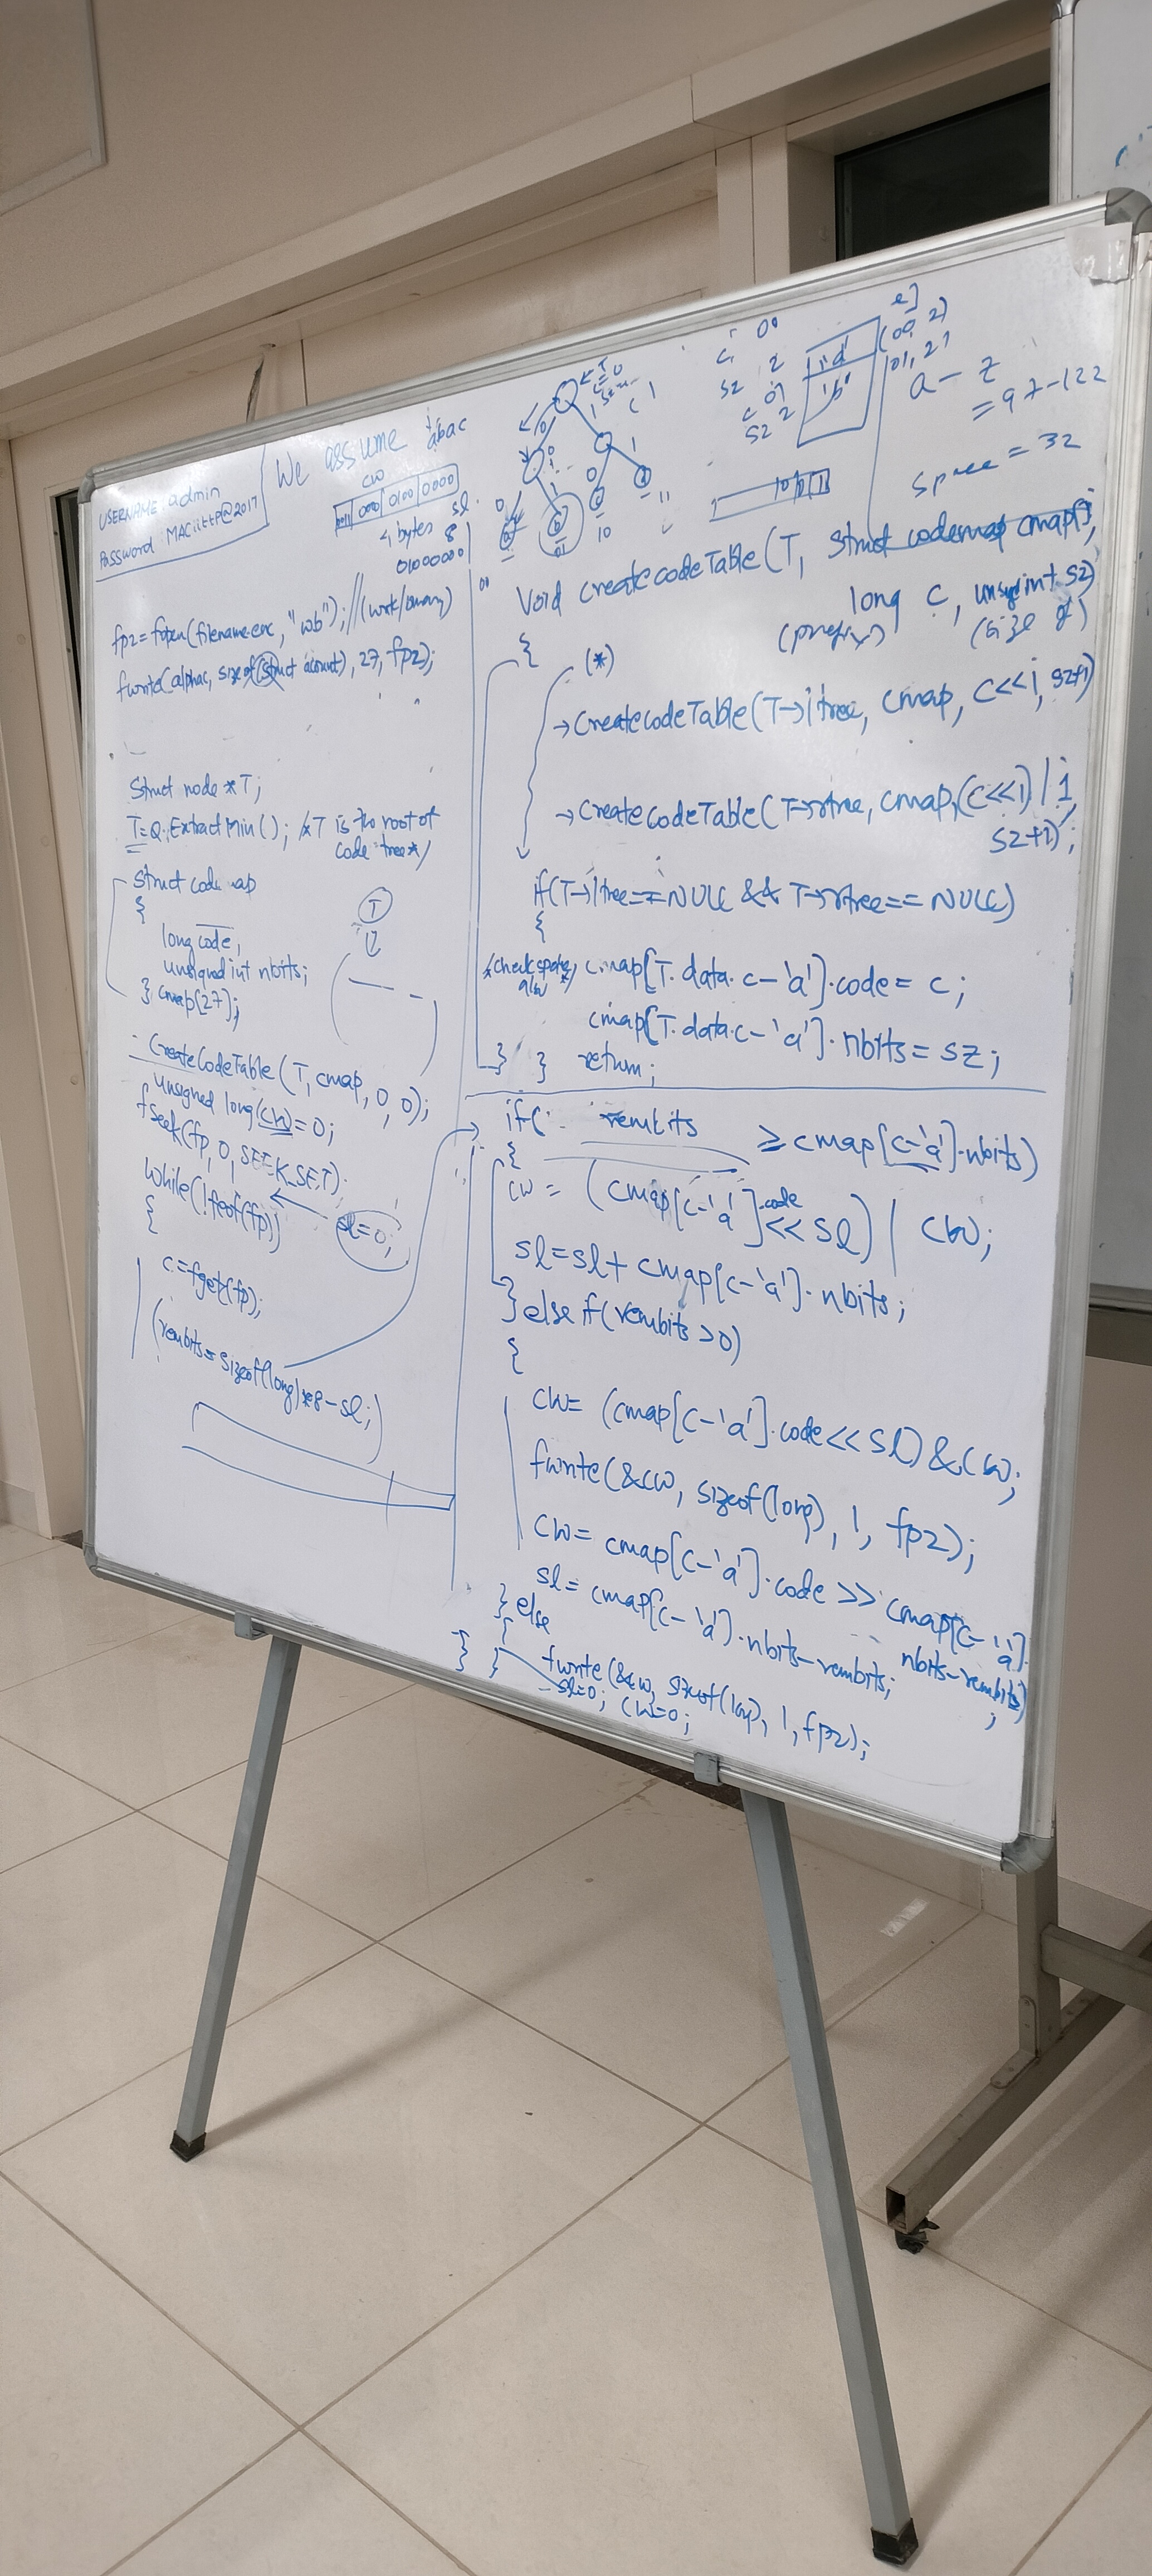 USERNAME admin
Password MACiittP@2017
We assume abac
cw
0100 0000
4 bytes
sl
8
01000000
fp2 = fopen(filename.enc, "wb"); //(write/binary)
fwrite(alphac, sizeof(struct acount), 27, fp2);
Struct node *T;
T=Q.ExtractMin(); /*T is the root of
code tree*/
Struct code map
{
long code,
unsigned int nbits;
} cmap[27];
T
CreateCodeTable(T, cmap, 0, 0);
unsigned long(cw)=0;
fseek(fp, 0, SEEK_SET).
while(!feof(fp))
sl=0;
{
c=fgetc(fp);
(rembits=sizeof(long)*8-sl;)
T
c=0
0
1
c 1
0
1
0
1
00
01
10
11
c 00
sz 2
c 01
sz 2
'a'
'b'
(00, 2)
01, 2)
a - z
= 97-122
space = 32
Void createcodeTable(T, struct codemap cmap[],
long c, unsigned int sz)
(prefix) (size of)
{
(*)
→CreatecodeTable(T→ltree, cmap, c<<1, sz+1)
→CreatecodeTable(T→rtree, cmap,(c<<1)|1,
sz+1);
if(T→ltree==NULL && T→rtree==NULL)
{
/*check space also*/ cmap[T.data.c-'a'].code = c;
cmap[T.data.c-'a'].nbits = sz;
} } return;
if( rembits ≥ cmap[c-'a'].nbits)
{
cw = (cmap[c-'a'].code << sl) | cw;
sl=sl+ cmap[c-'a'].nbits;
} else if(rembits >0)
{
cw= (cmap[c-'a'].code<<sl)&cw;
fwrite(&cw, sizeof(long), 1, fp2);
cw= cmap[c-'a'].code >> cmap[c-'a'].
nbits-rembits)
;
sl= cmap[c-'a'].nbits-rembits;
} else
{
fwrite(&cw, sizeof(long), 1, fp2);
} } sl=0; cw=0;